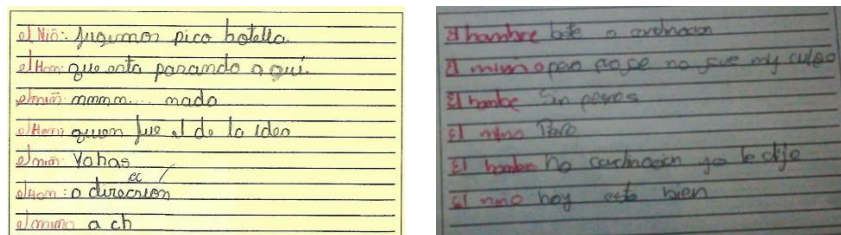 el Niñ: jugemos pico botella.
el Hom: que esta pasando a qui.
el miñ: mmmm.... nada
el Hom: quien fue el de la idea
el miñ: Yohas
el Hom: a direcsion cc
el miñ: a ch
El hombre bate a cordinacion
El mino pero profe no fue my culpa
El hombe Sin peros
El mino Pero
El hombe ha cordinacion ya le dije
El niño hay esta bien